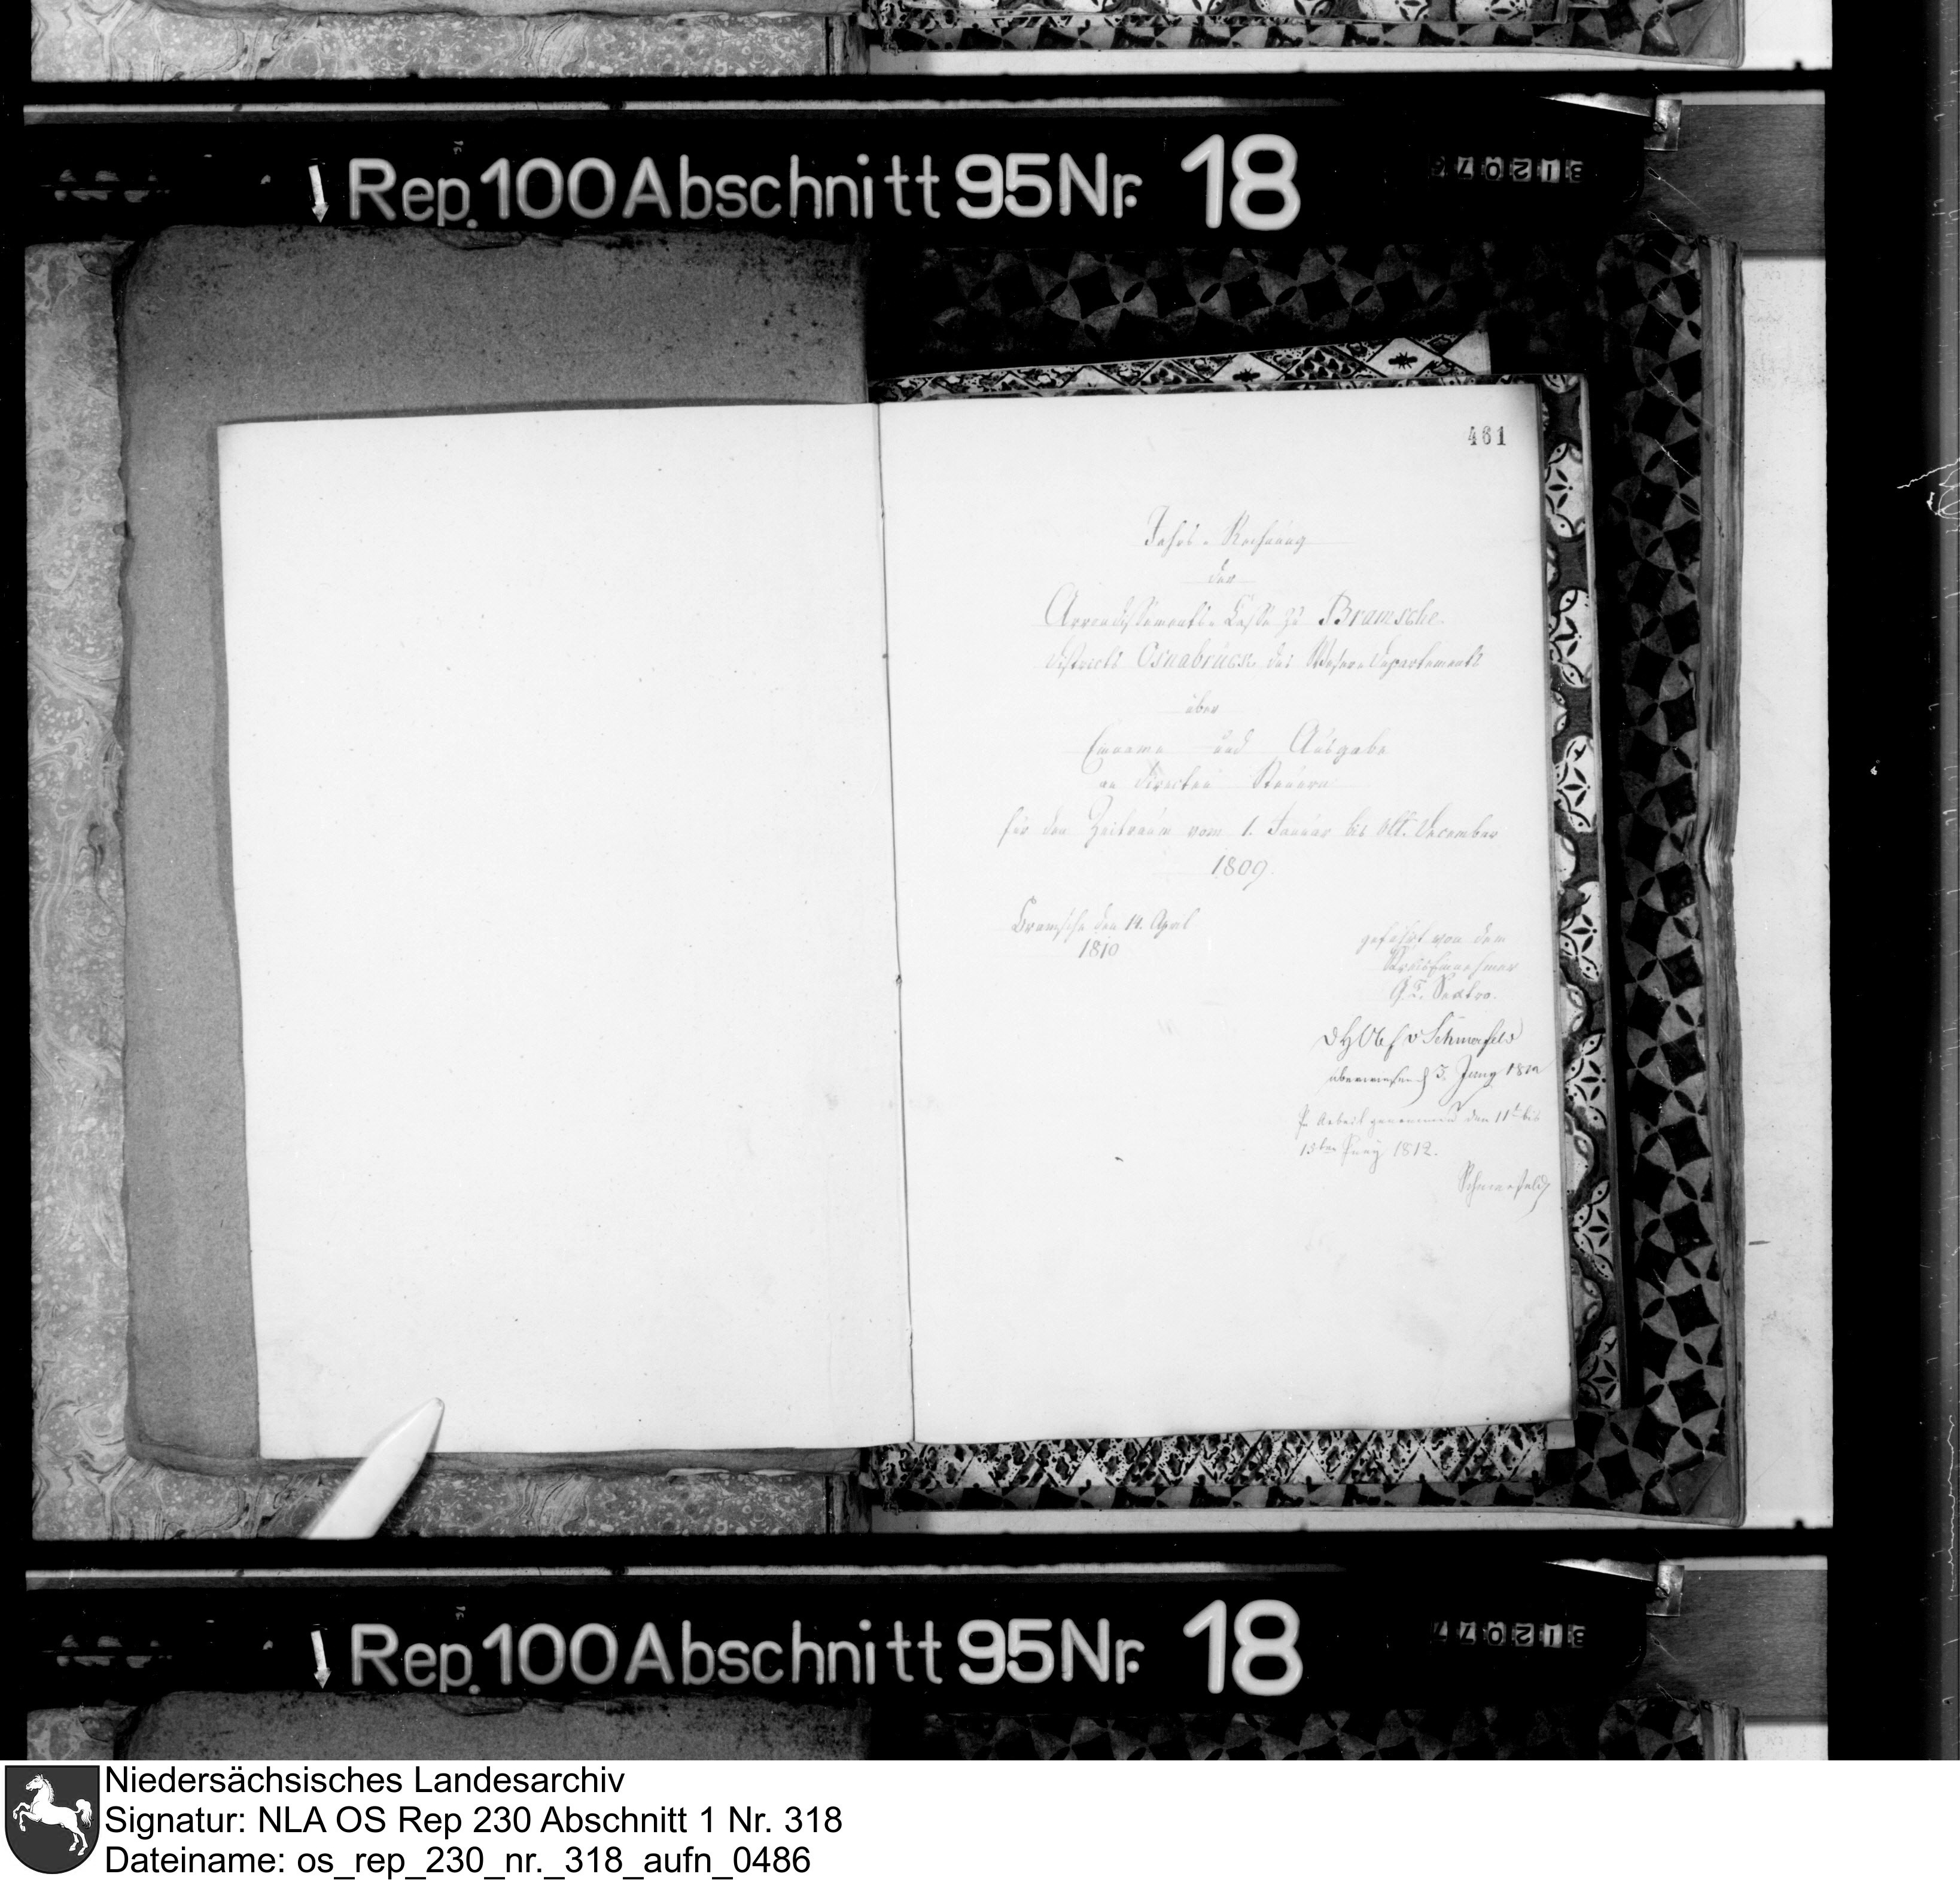 Rep. 100 Abschnitt 95 Nr. 18
461
Jahrs-Rechnung
der
Arrondissements-Casse zu Bramsche
Districts Osnabrück des Weser-Departements
über
Einname und Ausgabe
an directen Steuern
für den Zeitraum vom 1. Januar bis ult. December
1809.
Bramsche den 14. April
1810
geführt von dem
Kreiseinnehmer
Sextro.
v
überwiesen d 3. Juny 1812
Arbeit genommen den 11t bis
15ten Juny 1812.
Rep. 100 Abschnitt 95 Nr. 18
Niedersächsisches Landesarchiv
Signatur: NLA OS Rep 230 Abschnitt 1 Nr. 318
Dateiname: os_rep_230_nr._318_aufn_0486